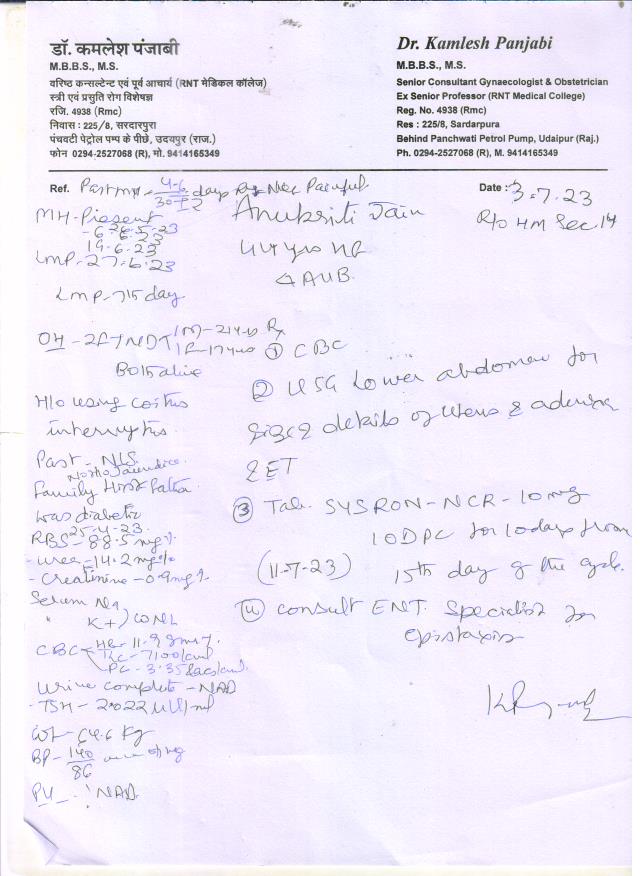 डॉ. कमलेश पंजाबी
M.B.B.S., M.S.
वरिष्ठ कन्सल्टेन्ट एवं पूर्व आचार्य (RNT मेडिकल कॉलेज)
स्त्री एवं प्रसुति रोग विशेषज्ञ
रजि. 4938 (Rmc)
निवास : 225/8, सरदारपुरा
पंचवटी पेट्रोल पम्प के पीछे, उदयपुर (राज.)
फोन 0294-2527068 (R), मो. 9414165349
Dr. Kamlesh Panjabi
M.B.B.S., M.S.
Senior Consultant Gynaecologist & Obstetrician
Ex Senior Professor (RNT Medical College)
Reg. No. 4938 (Rmc)
Res : 225/8, Sardarpura
Behind Panchwati Petrol Pump, Udaipur (Raj.)
Ph. 0294-2527068 (R), M. 9414165349
Ref. Past MH - 4-6 days Painful
30±2
Date : 3.7.23
R/O HM Sec. 14
MH - Present
19.6.23
LMP - 27.6.23
LMP - 7/5 day
OH - 2FTND M-21yrs
F-17yrs
Both alive
H/o using coitus
interruptus
Past - NLS.
No H/o Jaundice
Family Hist Father
was diabetic
25-4-23
RBS - 88.5 mg%
- Urea - 14.2 mg%
- Creatinine - 0.9 mg%
Serum Na
" K+) WNL
CBC - Hb - 11.9 gm%
TLC - 7100/
PC - 3.35 lacs/
Urine complete - NAD
- TSH - 2.022 µIU/ml
Wt - 64.6 Kg
BP - 140 mm of Hg
86
PV - NAD
Anukriti Jain
44 yrs
AUB.
Rx
① CBC
② USG Lower abdomen for
size & details of uterus & adnexa
& ET
③ Tab. SYSRON-NCR-10mg
10DPC for 10days from
(11-7-23) 15th day of the cycle.
④ Consult ENT. Specialist for
epistaxis